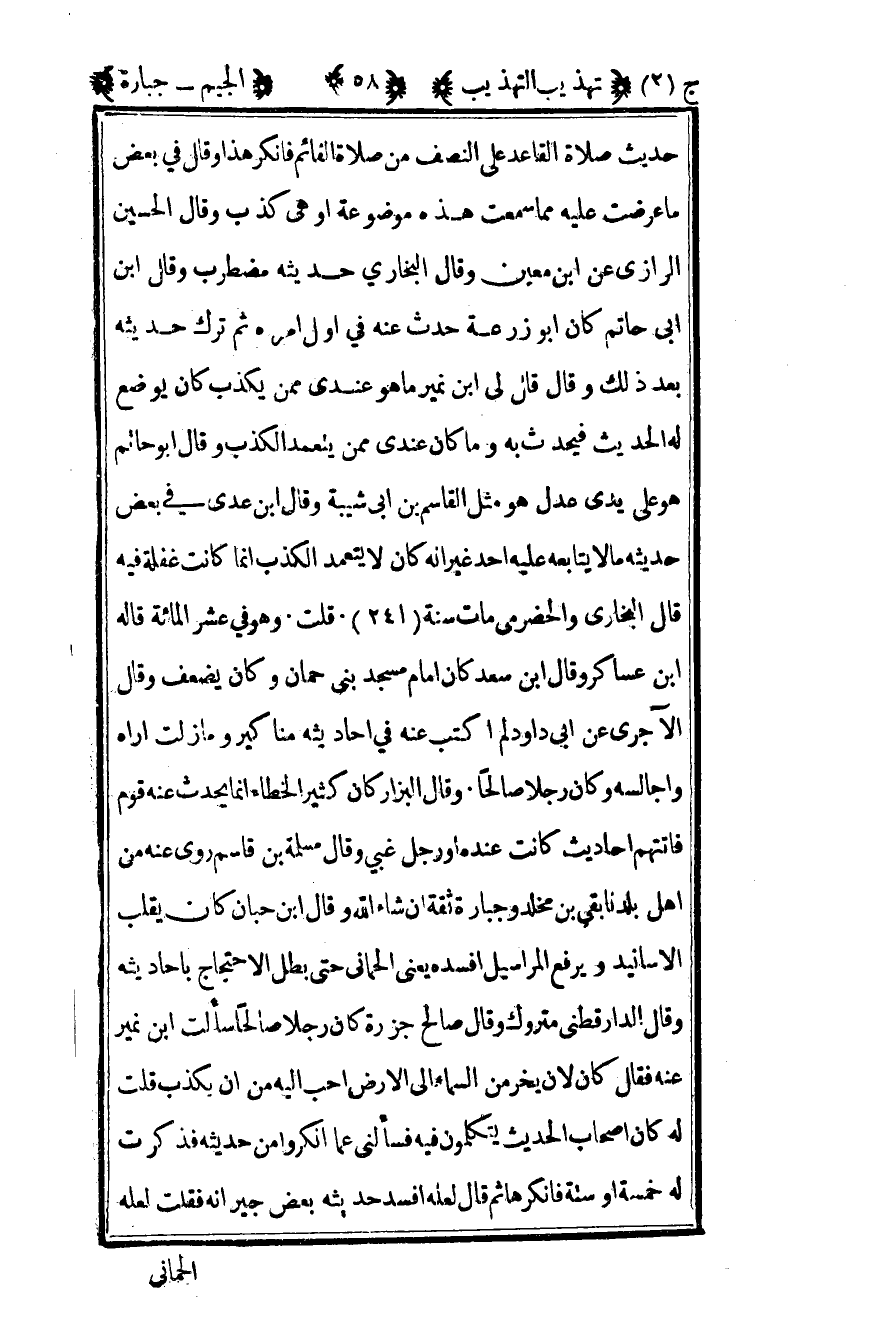 ج (٢) تهذيب التهذيب ٥٨ الجيم – جبارة
حديث صلاة القاعد على النصف من صلاة القائم فانكر هذا وقال في بعض
ما عرضت عليه مما سمعت هذه موضوعة او هى كذب وقال الحسين
الرازى عن ابن معين وقال البخاري حديثه مضطرب وقال ابن
ابى حاتم كان ابو زرعة حدث عنه في اول امره ثم ترك حديثه
بعد ذلك وقال قال لى ابن نمير ما هو عندى ممن يكذب كان يوضع
له الحديث فيحدث به وما كان عندى ممن يتعمد الكذب وقال ابو حاتم
هو على يدى عدل هو مثل القاسم بن ابى شيبة وقال ابن عدى في بعض
حديثه مالا يتابعه عليه احد غير انه كان لا يتعمد الكذب انما كانت غفلة فيه
قال البخارى والحضرمى مات سنة (٢٤١) · قلت · وهو في عشر المائة قاله
ابن عساكر وقال ابن سعد كان امام مسجد بنى حمان وكان يضعف وقال
الآجرى عن ابى داود لم اكتب عنه في احاديثه مناكير وما زلت اراه
واجالسه وكان رجلا صالحًا · وقال البزار كان كثير الخطاء انما يحدث عنه قوم
فاتتهم احاديث كانت عنده او رجل غبي وقال مسلمة بن قاسم روى عنه من
اهل بلدنا بقي بن مخلد وجبارة ثقة ان شاء الله وقال ابن حبان كان يقلب
الاسانيد ويرفع المراسيل افسده يعنى الحمانى حتى بطل الاحتجاج باحاديثه
وقال الدارقطنى متروك وقال صالح جزرة كان رجلا صالحًا سألت ابن نمير
عنه فقال كان لان يخر من السماء الى الارض احب اليه من ان يكذب قلت
له كان اصحاب الحديث يتكلمون فيه فسألنى عما انكروا من حديثه فذكرت
له خمسة او ستة فانكرها ثم قال لعله افسد حديثه بعض جيرانه فقلت لعله
الحمانى